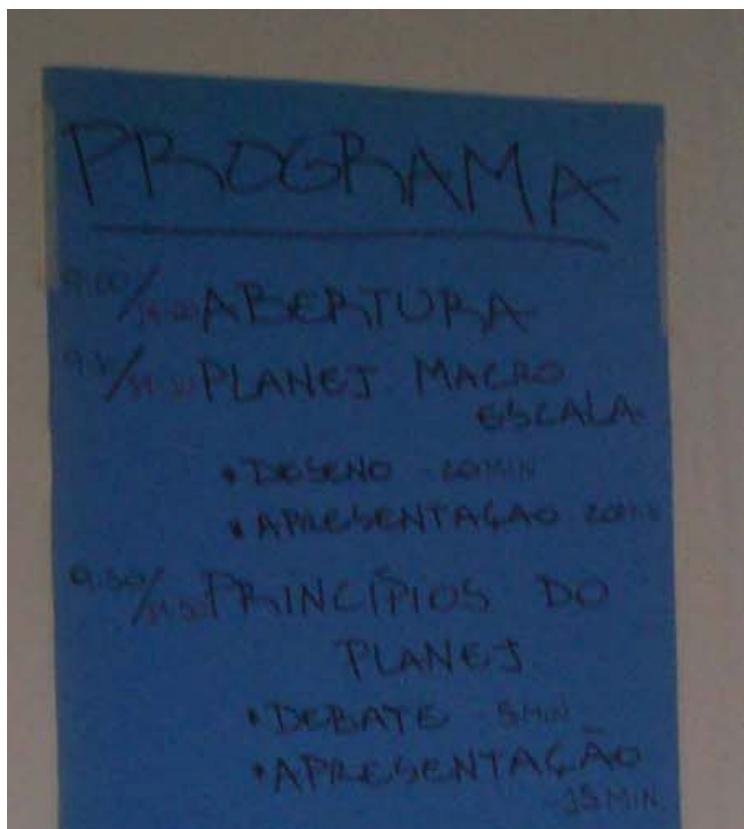 PROGRAMA
9:00/ ABERTURA
PLANEJ MACRO
ESCALA
* DESENO - 20 MIN
* APRESENTAÇAO 20MIN
9:50/ PRINCÍPIOS DO
PLANEJ
* DEBATE 5 MIN
* APRESENTAÇÃO
- 15 MIN